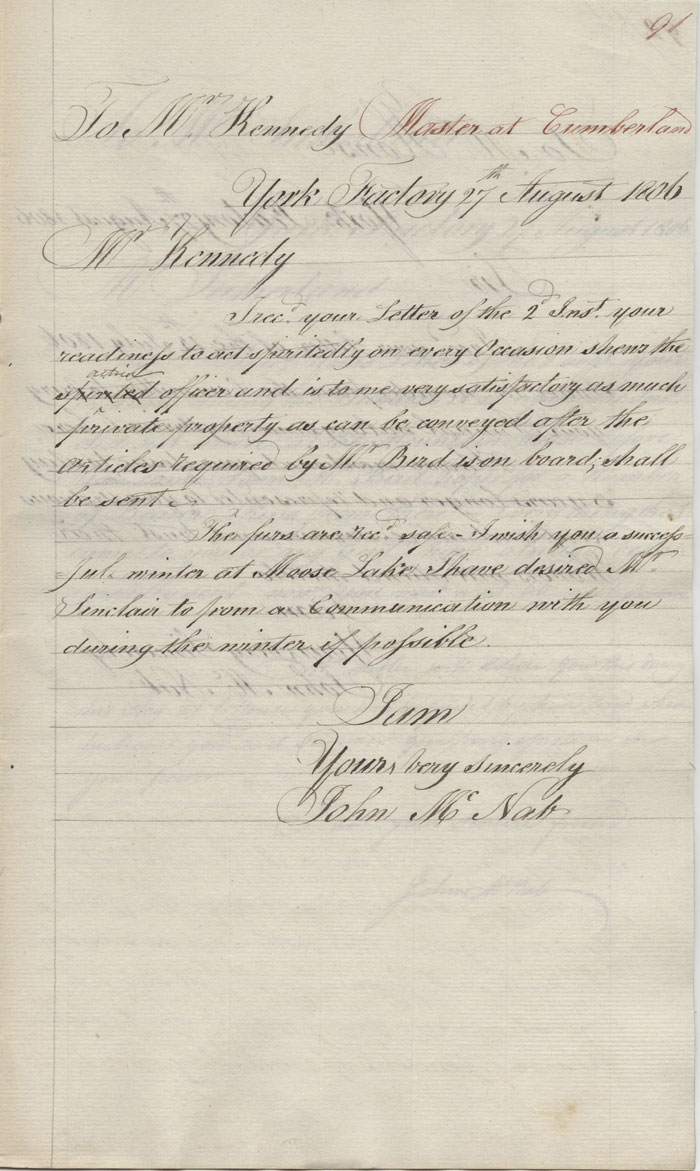 91
To Mr Kennedy Master at Cumberland
York Factory 27th August 1806
Mr Kennedy
I recd. your Letter of the 2d Inst. your
readiness to act spiritedly on every Occasion shews the
active
spirited officer and is to me very satisfactory as much
private property as can be conveyed after the
articles Required by Mr Bird is on board, shall
be sent.
The furs are recd. safe - I wish you a success=
ful winter at Moose Lake I have desired Mr.
Sinclair to from a Communication with you
during the winter if possible.
I am
Yours very sincerely
John Mc Nab